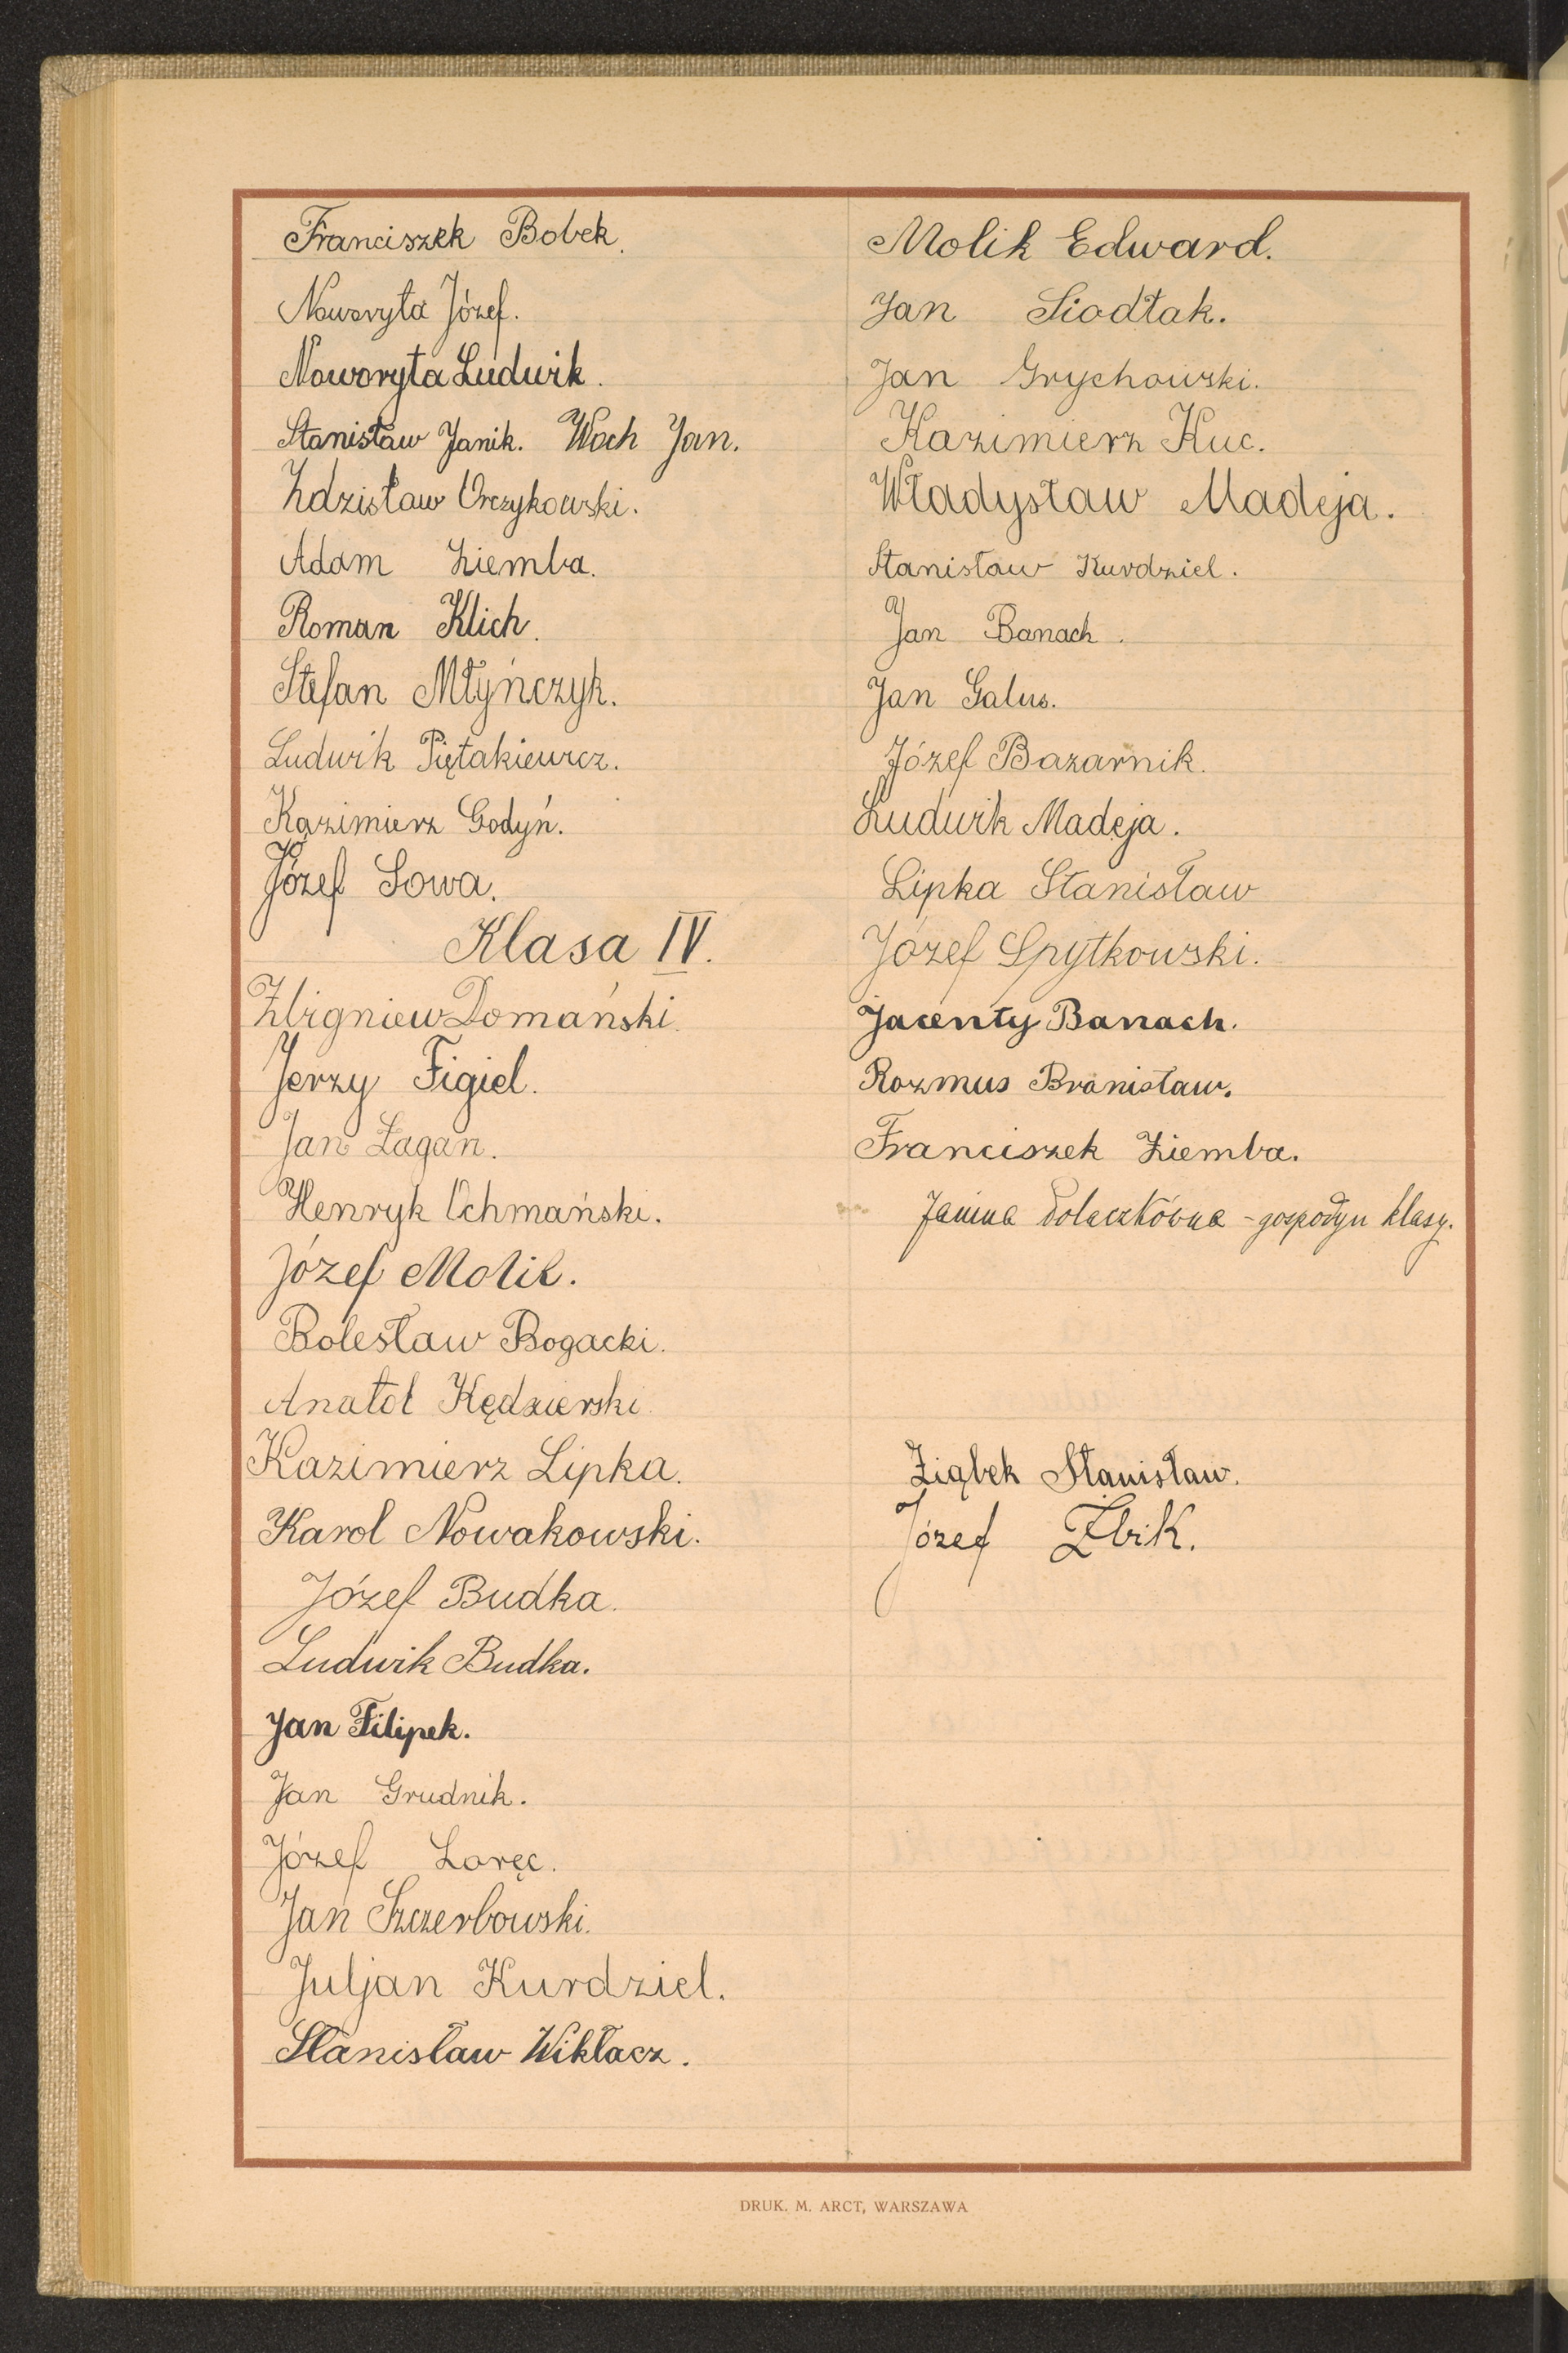 Franciszek Bobek.
Noworyta Józef.
Noworyta Ludwik.
Stanisław Janik. Woch Jan.
Zdzisław Orczykowski.
Adam Ziemba.
Roman Klich.
Stefan Młyńczyk.
Ludwik Piętakiewicz.
Kazimierz Godyń.
Józef Sowa.
Klasa IV.
Zbigniew Domański.
Jerzy Figiel.
Jan Żagan.
Henryk Ochmański.
Józef Molik.
Bolesław Bogacki.
Anatol Kędzierski.
Kazimierz Lipka.
Karol Nowakowski.
Józef Budka.
Ludwik Budka.
Jan Filipek.
Jan Grudnik.
Józef Loręc.
Jan Szczerbowski.
Juljan Kurdziel.
Stanisław Wikłacz.
Molik Edward.
Jan Siodłak.
Jan Grychowski.
Kazimierz Kuc.
Władysław Madeja.
Stanisław Kurdziel.
Jan Banach.
Jan Galus.
Józef Bazarnik.
Ludwik Madeja.
Lipka Stanisław
Józef Spytkowski.
Jacenty Banach.
Rozmus Bronisław.
Franciszek Ziemba.
Janina - gospodyni klasy.
Ziąbek Stanisław.
Józef Żbik.
DRUK. M. ARCT, WARSZAWA